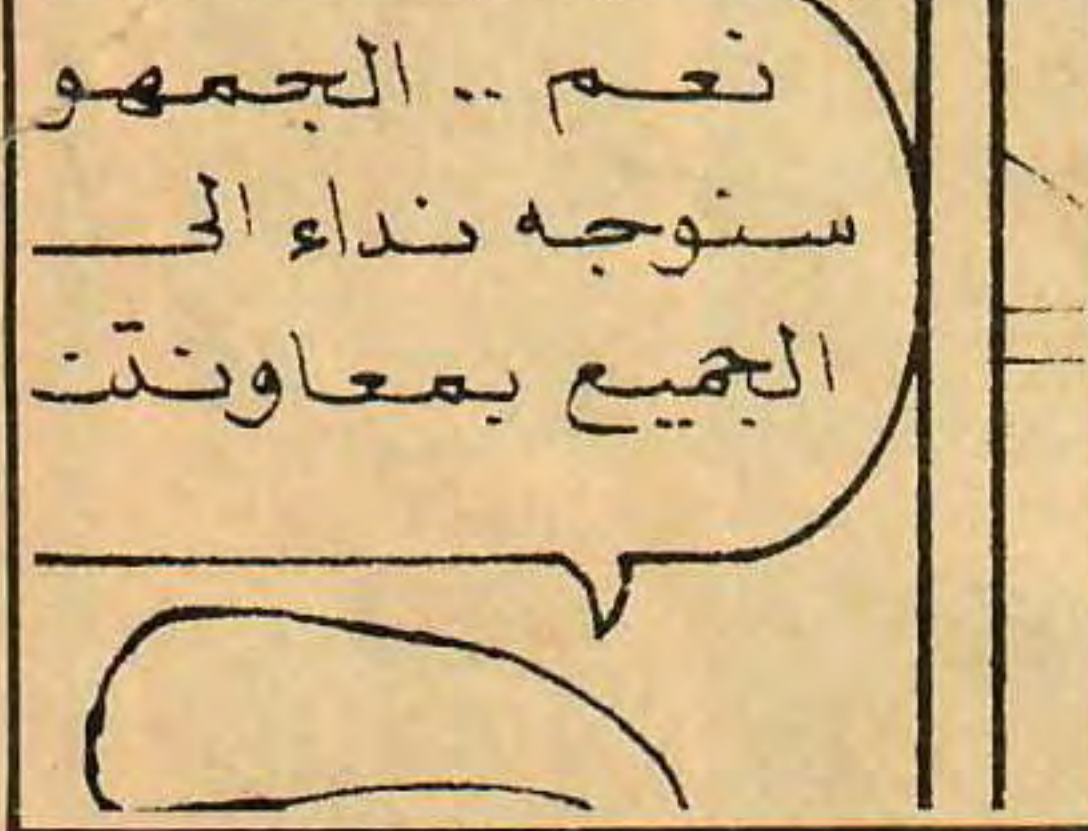 نعم .. الجمهو
سنوجه نداء الى
الجميع بمعاونتن